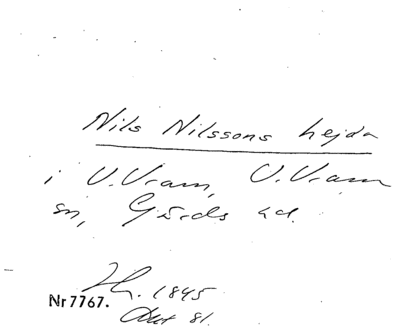 Nils Nilssons hejda
i V. Vram, V. Vram
sn, Gärds hd.
1845
Nr 7767.
81.